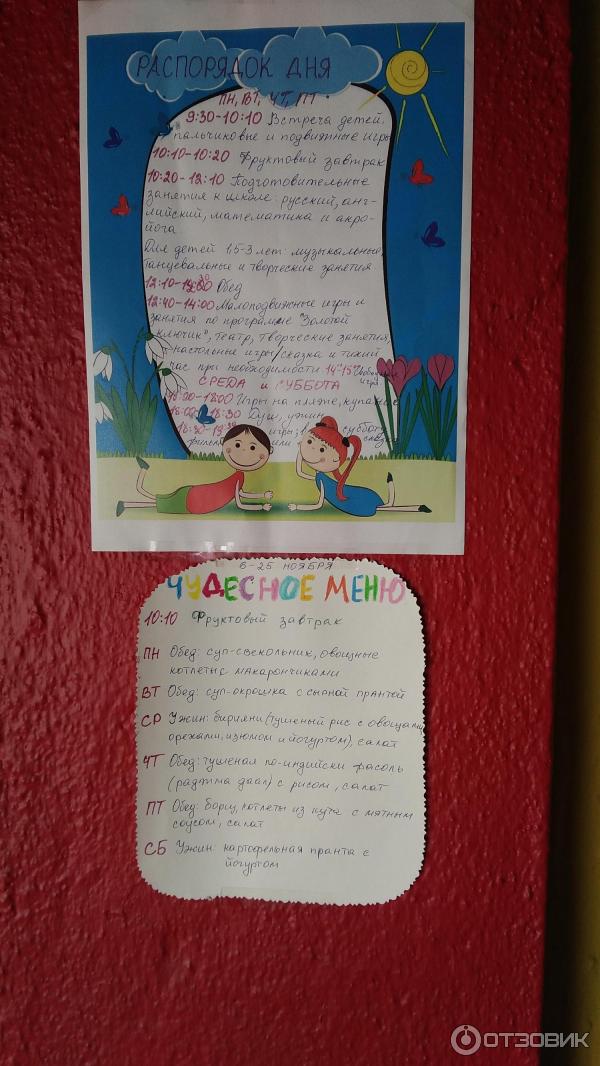 РАСПОРЯДОК ДНЯ
ПН, ВТ, ЧТ, ПТ
9:30-10:10 Встреча детей.
пальчиковые и подвижные игры
10:10-10:20 Фруктовый завтрак
10:20-12:10 Подготовительные
занятия к школе: русский, анг-
лийский, математика и акро-
йога
Для детей 1,5-3 лет: музыкальные,
танцевальные и творческие занятия
12:10- Обед
12:40-14:00 Малоподвижные игры и
занятия по програме "Золотой
ключик", театр, творческие занятия,
настольные игры/сказка и тихий
час при необходимости 14-15
СРЕДА и СУББОТА
-18:00 Игры на пляже,
18:00-18:30 Душ, ужин
18:30- игры, в субботу
или
6-25 НОЯБРЯ
ЧУДЕСНОЕ МЕНЮ
10:10 Фруктовый завтрак
ПН Обед: суп-свекольник, овощные
котлеты с макарончиками
ВТ Обед: суп-окрошка с сырной прантой
СР Ужин: бирияни (тушеный рис с овощами,
орехами, изюмом и йогуртом), салат
ЧТ Обед: тушеная по-индийски фасоль
(раджма даал) с рисом, салат
ПТ Обед: борщ, котлеты из нута с мятным
соусом, салат
СБ Ужин: картофельная пранта с
йогуртом
ОТЗОВИК